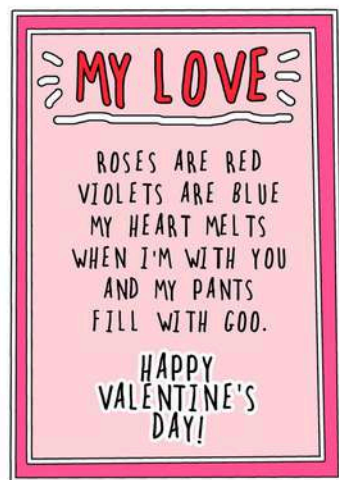 MY LOVE
ROSES ARE RED
VIOLETS ARE BLUE
MY HEART MELTS
WHEN I'M WITH YOU
AND MY PANTS
FILL WITH GOO.
HAPPY
VALENTINE'S
DAY!